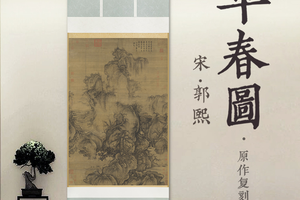 春圖
宋·郭熙
·原作复刻